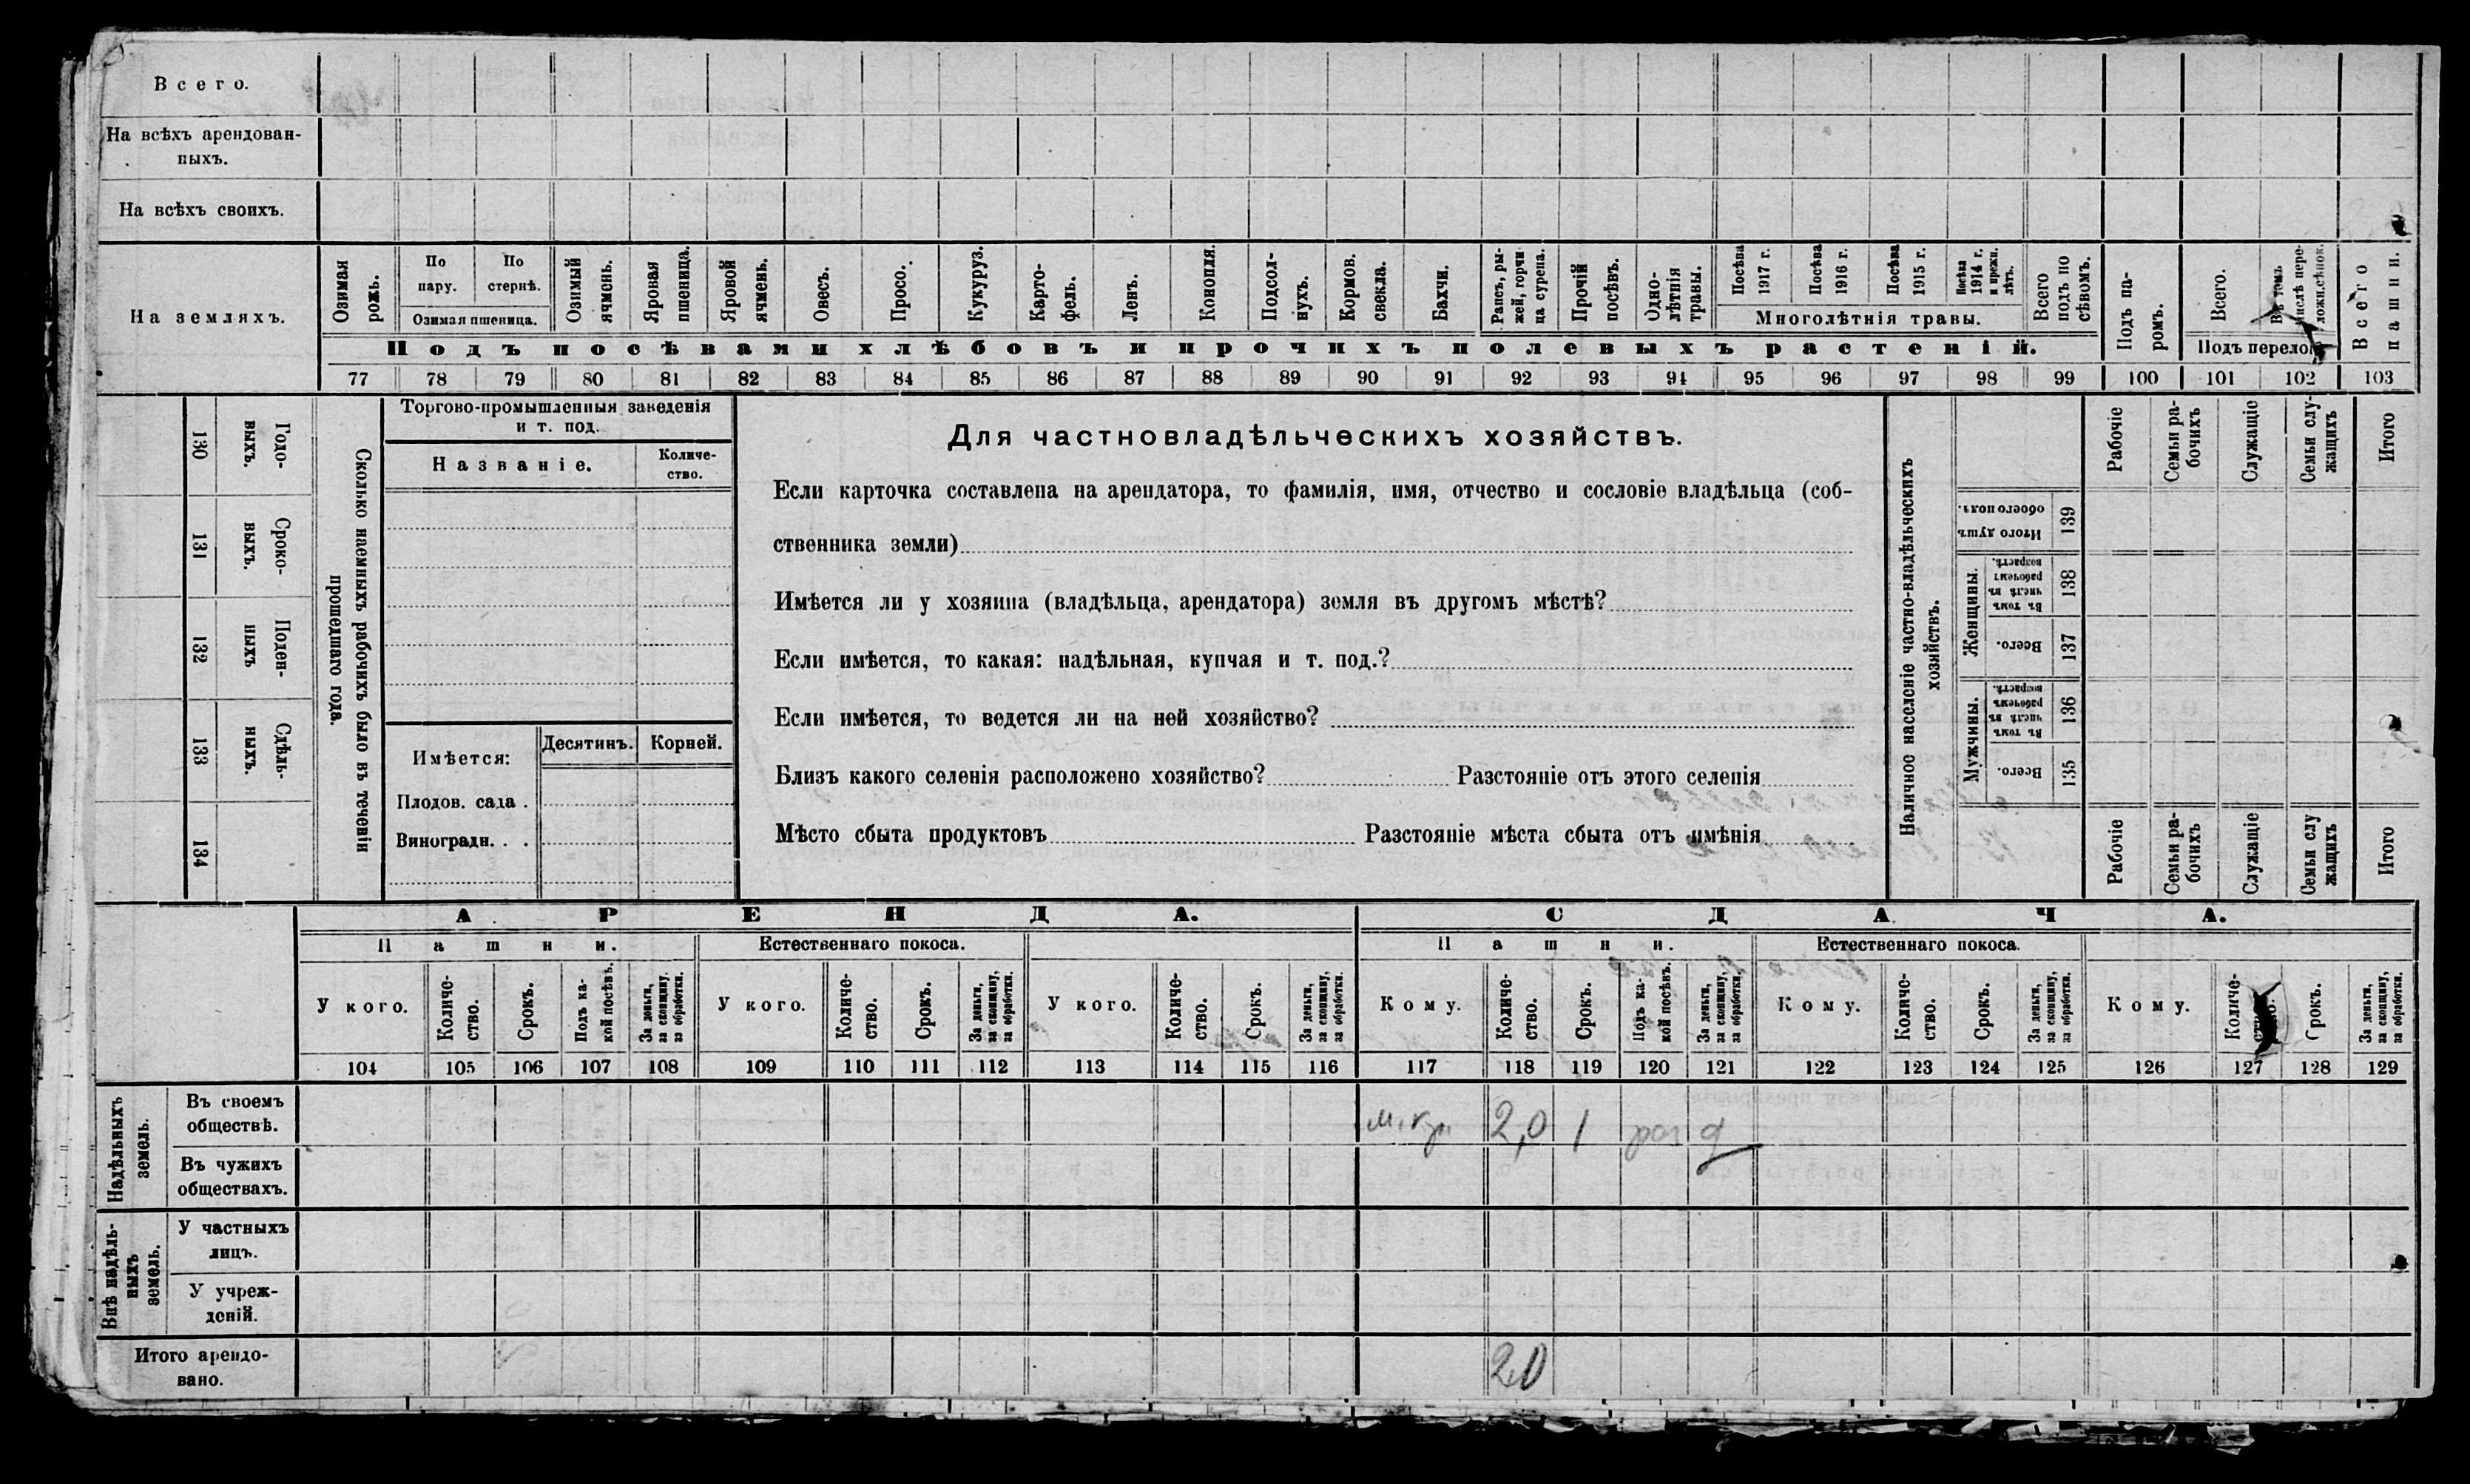 Всего.
На всѣхъ арендован-
ныхъ.
На всѣхъ своихъ.
На земляхъ.
Озимая рожь.
По пару.
По стернѣ.
Озимая пшеница.
Озимый ячмень.
Яровая пшеница.
Яровой ячмень.
Овесъ.
Просо.
Кукуруз.
Карто-
фель.
Ленъ.
Конопля.
Подсол-
нухъ.
Кормов.
свекла.
Бахчи.
Рапсъ, ры-
жей, горчи
ца сурепа.
Прочій
посѣвъ.
Одно-
лѣтнія
травы.
Посѣва
1917 г.
Посѣва
1916 г.
Посѣва
1915 г.
Посѣва
1914 г.
и прежн.
лѣтъ.
Многолѣтнія травы.
Всего
подъ по
сѣвомъ.
Подъ посѣвами хлѣбовъ и прочихъ полевыхъ растеній.
Подъ па-
ромъ.
Всего.
Въ томъ
числѣ пере-
ложн. сѣнок.
Подъ перелог
Всего
пашни.
77 78 79 80 81 82 83 84 85 86 87 88 89 90 91 92 93 94 95 96 97 98 99 100 101 102 103
130
Годо-
выхъ.
131
Сроко-
выхъ.
132
Поден-
ныхъ
133
Сдѣль-
ныхъ.
134
Сколько наемныхъ рабочихъ было въ теченіи
прошедшаго года.
Торгово-промышленныя заведенія
и т. под.
Названіе.
Количе-
ство.
Имѣется:
Десятинъ.
Корней.
Плодов. сада .
Виноградн. . .
Для частновладѣльческихъ хозяйствъ.
Если карточка составлена на арендатора, то фамилія, имя, отчество и сословіе владѣльца (соб-
ственника земли)
Имѣется ли у хозяина (владѣльца, арендатора) земля въ другомъ мѣстѣ?
Если имѣется, то какая: надѣльная, купчая и т. под.?
Если имѣется, то ведется ли на ней хозяйство?
Близъ какого селенія расположено хозяйство? Разстояніе отъ этого селенія
Мѣсто сбыта продуктовъ Разстояніе мѣста сбыта отъ имѣнія
Наличное населеніе частно-владѣльческихъ
хозяйствъ.
Рабочіе
Семьи ра-
бочихъ
Служащіе
Семьи слу-
жащихъ
Итого
Итого душъ
обоего пола.
139
Женщины.
Въ томъ
числѣ въ
рабочемъ
возрастѣ.
138
Всего.
137
Мужчины.
Въ томъ
числѣ въ
рабочемъ
возрастѣ.
136
Всего.
135
Рабочіе
Семьи ра-
бочихъ
Служащіе
Семьи слу
жащихъ
Итого
АРЕНДА. СДАЧА.
Пашни. Естественнаго покоса. Пашни. Естественнаго покоса.
У кого.
Количе-
ство.
Срокъ.
Подъ ка-
кой посѣвъ.
За деньги,
за скопщину,
за обработки.
У кого.
Количе-
ство.
Срокъ.
За деньги,
за скопщину,
за обработки.
У кого.
Количе-
ство.
Срокъ.
За деньги,
за скопщину,
за обработки.
Кому.
Количе-
ство.
Срокъ.
Подъ ка-
кой посѣвъ.
За деньги,
за скопщину,
за обработки.
Кому.
Количе-
ство.
Срокъ.
За деньги,
за скопщину,
за обработки.
Кому.
Количе-
ство.
Срокъ.
За деньги,
за скопщину,
за обработки.
104 105 106 107 108 109 110 111 112 113 114 115 116 117 118 119 120 121 122 123 124 125 126 127 128 129
Надѣльныхъ
земель.
Въ своемъ
обществѣ.
2,0 1
Въ чужихъ
обществахъ.
Внѣ надѣль-
ныхъ
земель.
У частныхъ
лицъ.
У учреж-
деній.
Итого арендо-
вано.
2,0